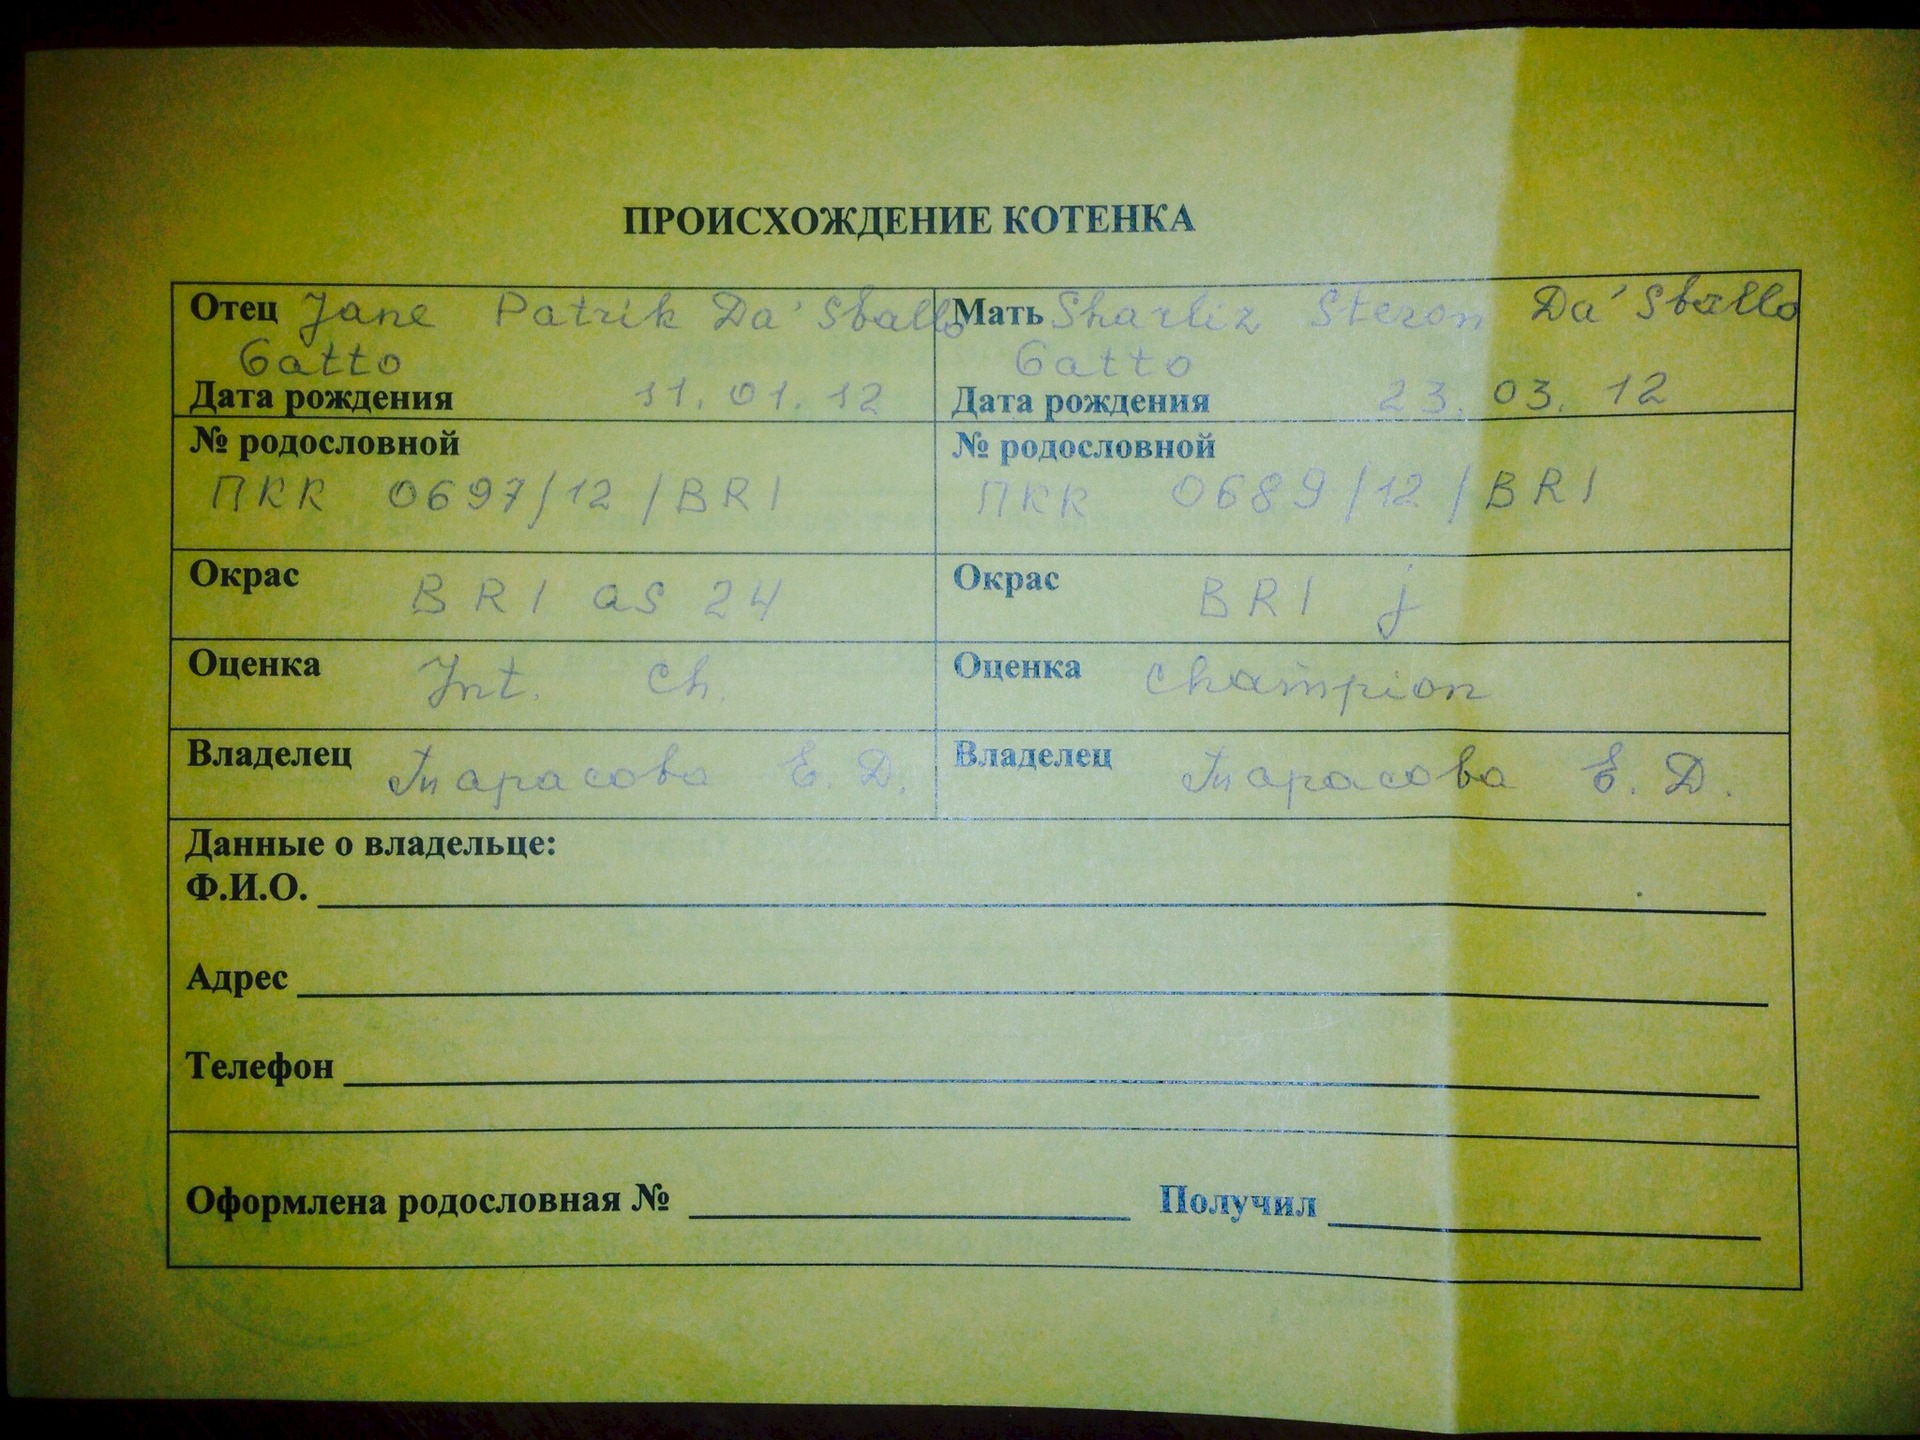 ПРОИСХОЖДЕНИЕ КОТЕНКА
Отец Jane Patrik Da' Sballo
Gatto
Дата рождения 11.01.12
№ родословной
ПКК 0697/12/BRI
Окрас BRI as 24
Оценка Int. Ch.
Владелец Тарасова Е. Д.
Мать Sharliz Steron Da' Sballo
Gatto
Дата рождения 23.03.12
№ родословной
ПКК 0689/12/BRI
Окрас BRI j
Оценка Champion
Владелец Тарасова Е. Д.
Данные о владельце:
Ф.И.О.
Адрес
Телефон
Оформлена родословная № Получил